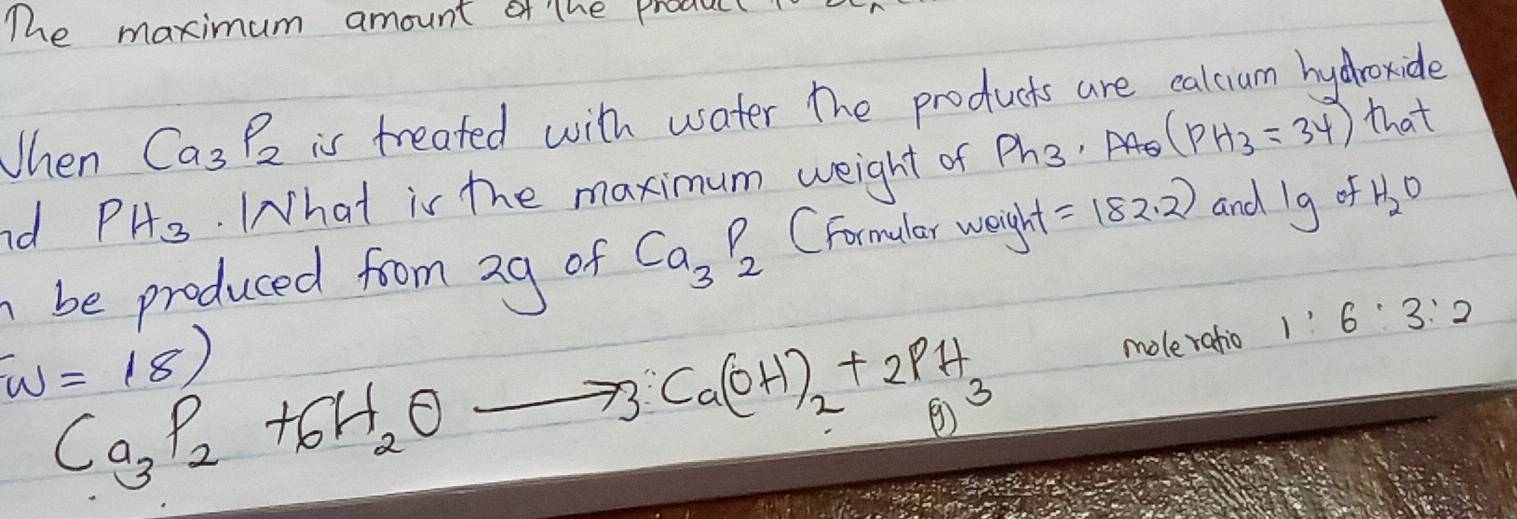 The maximum amount of the product
When Ca3P2 is treated with water the products are calcium hydroxide
nd PH3. What is the maximum weight of Ph3. (PH3 = 34) that
n be produced from 2g of Ca3P2 (Formular weight = 182.2) and 1g of H2O
w = 18)
Ca3P2 + 6H2O → 3Ca(OH)2 + 2PH3 (g) mole ratio 1:6:3:2